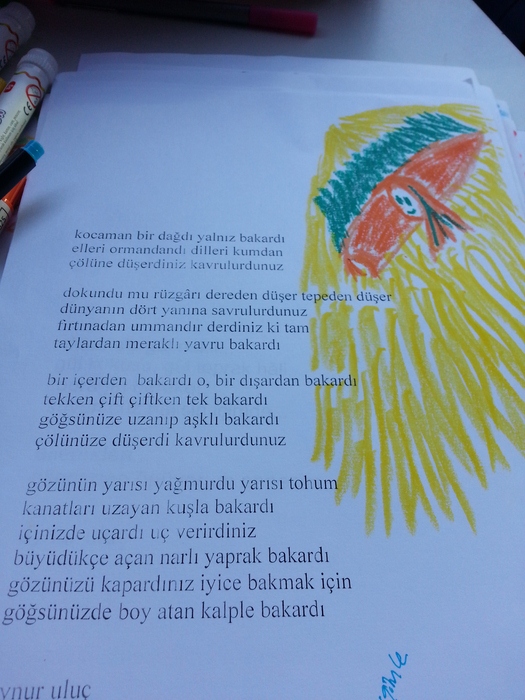 kocaman bir dağdı yalnız bakardı
elleri ormandandı dilleri kumdan
çölüne düşerdiniz kavrulurdunuz
dokundu mu rüzgârı dereden düşer tepeden düşer
dünyanın dört yanına savrulurdunuz
fırtınadan ummandır derdiniz ki tam
taylardan meraklı yavru bakardı
bir içerden bakardı o, bir dışardan bakardı
tekken çift çiftken tek bakardı
göğsünüze uzanıp aşklı bakardı
çölünüze düşerdi kavrulurdunuz
gözünün yarısı yağmurdu yarısı tohum
kanatları uzayan kuşla bakardı
içinizde uçardı uç verirdiniz
büyüdükçe açan narlı yaprak bakardı
gözünüzü kapardınız iyice bakmak için
göğsünüzde boy atan kalple bakardı
ynur uluç